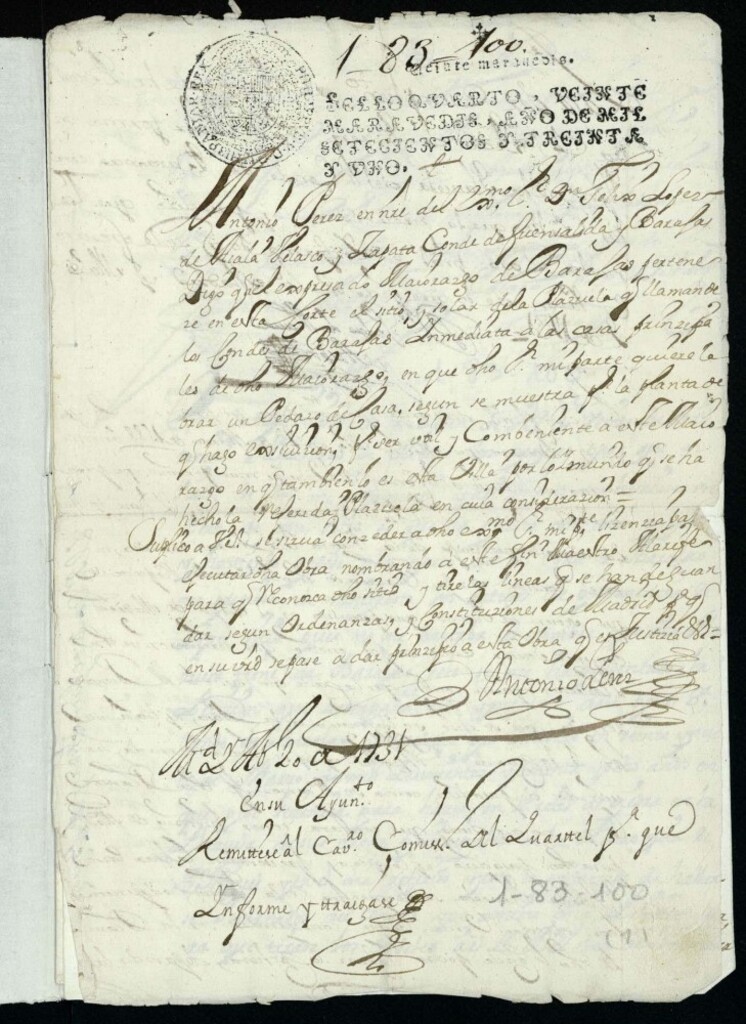 1-83-100.
Veinte maravedis.
SELLO QVARTO, VEINTE
MARAVEDIS, AÑO DE MIL
SETECIENTOS Y TREINTA
Y VNO.
Antonio Perez en nre del Exmo Sr Dn Felix Lopez
de Aiala Velasco y Zapata Conde de fuensalida y Barajas
Digo qe el expresado Maiorazgo de Barajas pertene
ze en esta Corte el sitio y solar de la Plazuela qe llaman de
los Condes de Barajas Inmediata a las casas prinzipa
les de dho Maiorazgo, en que dho Sr mi parte quiere la
brar un Pedazo de Casa, segun se muestra pr la planta de
qe hago exsivizion, pr ser util y Combeniente a este Maio
razgo en qe tambien lo es esta Villa por lo inmundo qe se ha
hecho la referida Plazuela en cuia considerazion =
Suplico a V.S. se sirva conzeder a dho exmo Sr mi pte lizenzia pa
executar dha Obra nombrando a este fin Maestro Alarife
para qe Reconozca dho sitio y tire las lineas qe se han de guar
dar segun Ordenanzas, y Constituziones de Madrid pa qe
en su vrd se pase a dar prinzipio a esta Obra qe es Justizia &a =
Antonio Perez
Md y Abl 20 de 1731
En su Ayunto
Remittese al Cavro Comisso del Quarttel pa que
Informe y ttraigase
1-83-100
(1)